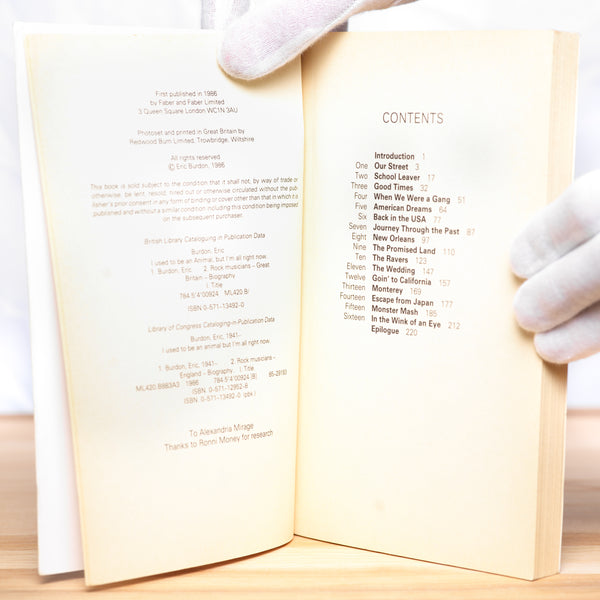 First published in 1986
by Faber and Faber Limited
3 Queen Square London WC1N 3AU
Photoset and printed in Great Britain by
Redwood Burn Limited, Trowbridge, Wiltshire
All rights reserved
© Eric Burdon, 1986
This book is sold subject to the condition that it shall not, by way of trade or
otherwise, be lent, resold, hired out or otherwise circulated without the pub-
lisher's prior consent in any form of binding or cover other than that in which it is
published and without a similar condition including this condition being imposed
on the subsequent purchaser.
British Library Cataloguing in Publication Data
Burdon, Eric
I used to be an Animal, but I'm all right now.
1. Burdon, Eric 2. Rock musicians – Great
Britain – Biography
I. Title
784.5'4'00924 ML420.B/
ISBN 0-571-13492-0
Library of Congress Cataloging-in-Publication Data
Burdon, Eric, 1941–
I used to be an animal but I'm all right now.
1. Burdon, Eric, 1941– 2. Rock musicians –
England – Biography. I. Title
ML420.B8863A3 1986 784.5'4'00924 [B] 85-29193
ISBN 0-571-12952-8
ISBN 0-571-13492-0 (pbk.)
To Alexandria Mirage
Thanks to Ronni Money for research
CONTENTS
Introduction 1
One Our Street 3
Two School Leaver 17
Three Good Times 32
Four When We Were a Gang 51
Five American Dreams 64
Six Back in the USA 77
Seven Journey Through the Past 87
Eight New Orleans 97
Nine The Promised Land 110
Ten The Ravers 123
Eleven The Wedding 147
Twelve Goin' to California 157
Thirteen Monterey 169
Fourteen Escape from Japan 177
Fifteen Monster Mash 185
Sixteen In the Wink of an Eye 212
Epilogue 220